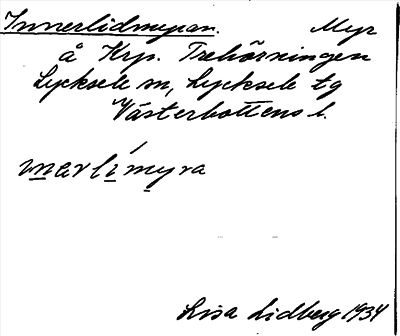 Innerlidmyran. Myr
å Krp. Trehörningen
Lycksele sn, Lycksele tg
Västerbottens l.
ınarlímyra
Lisa Lidberg 1934